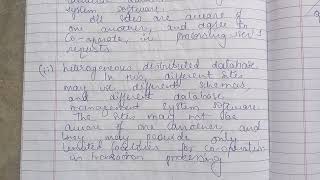 system software.
All sites are aware of
one another, and agree to
co-operate, in processing user's
requests.
(ii) hetrogeneous distributed database.
In this, different sites
may use different schemas,
and different database
management system software.
The sites may not be
aware of one another and
they may provide only
limited facilities for co-operation
in transaction processing